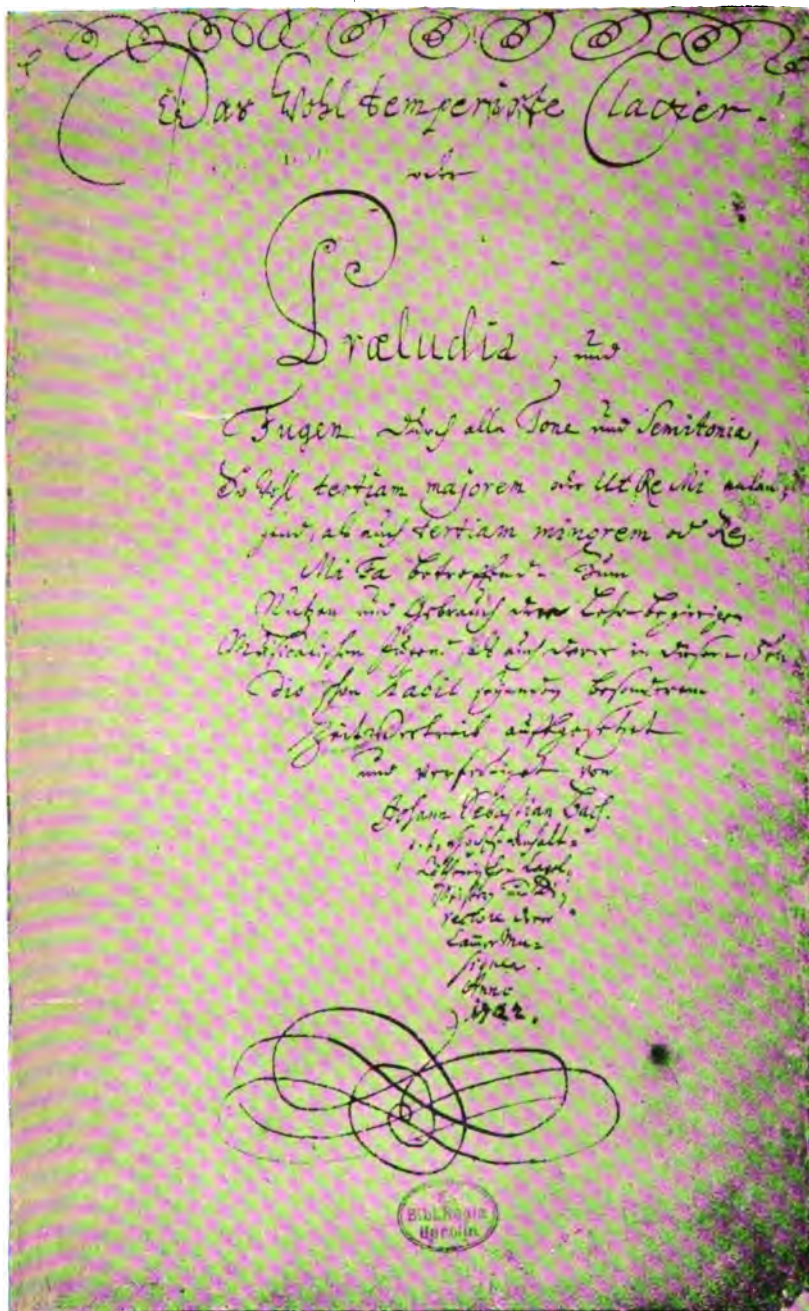 Das Wohltemperirte Clavier.
oder
Præludia, und
Fugen durch alle Tone und Semitonia,
So wohl tertiam majorem oder Ut Re Mi anlan-
gend, als auch tertiam minorem oder Re
Mi Fa betreffend. Zum
Nutzen und Gebrauch der Lehr-begierigen
Musicalischen Jugend, als auch derer in diesem stu-
dio schon habil seyenden besonderem
Zeitvertreib auffgesetzet
und verfertiget von
Johann Sebastian Bach.
p. t. Hochf. Anhalt-
Cöthenischen Capel-
Meistern und Di-
rectore derer
Cammer Mu-
siquen.
Anno
1722.
Ex
Bibl. Regia
Berolin.